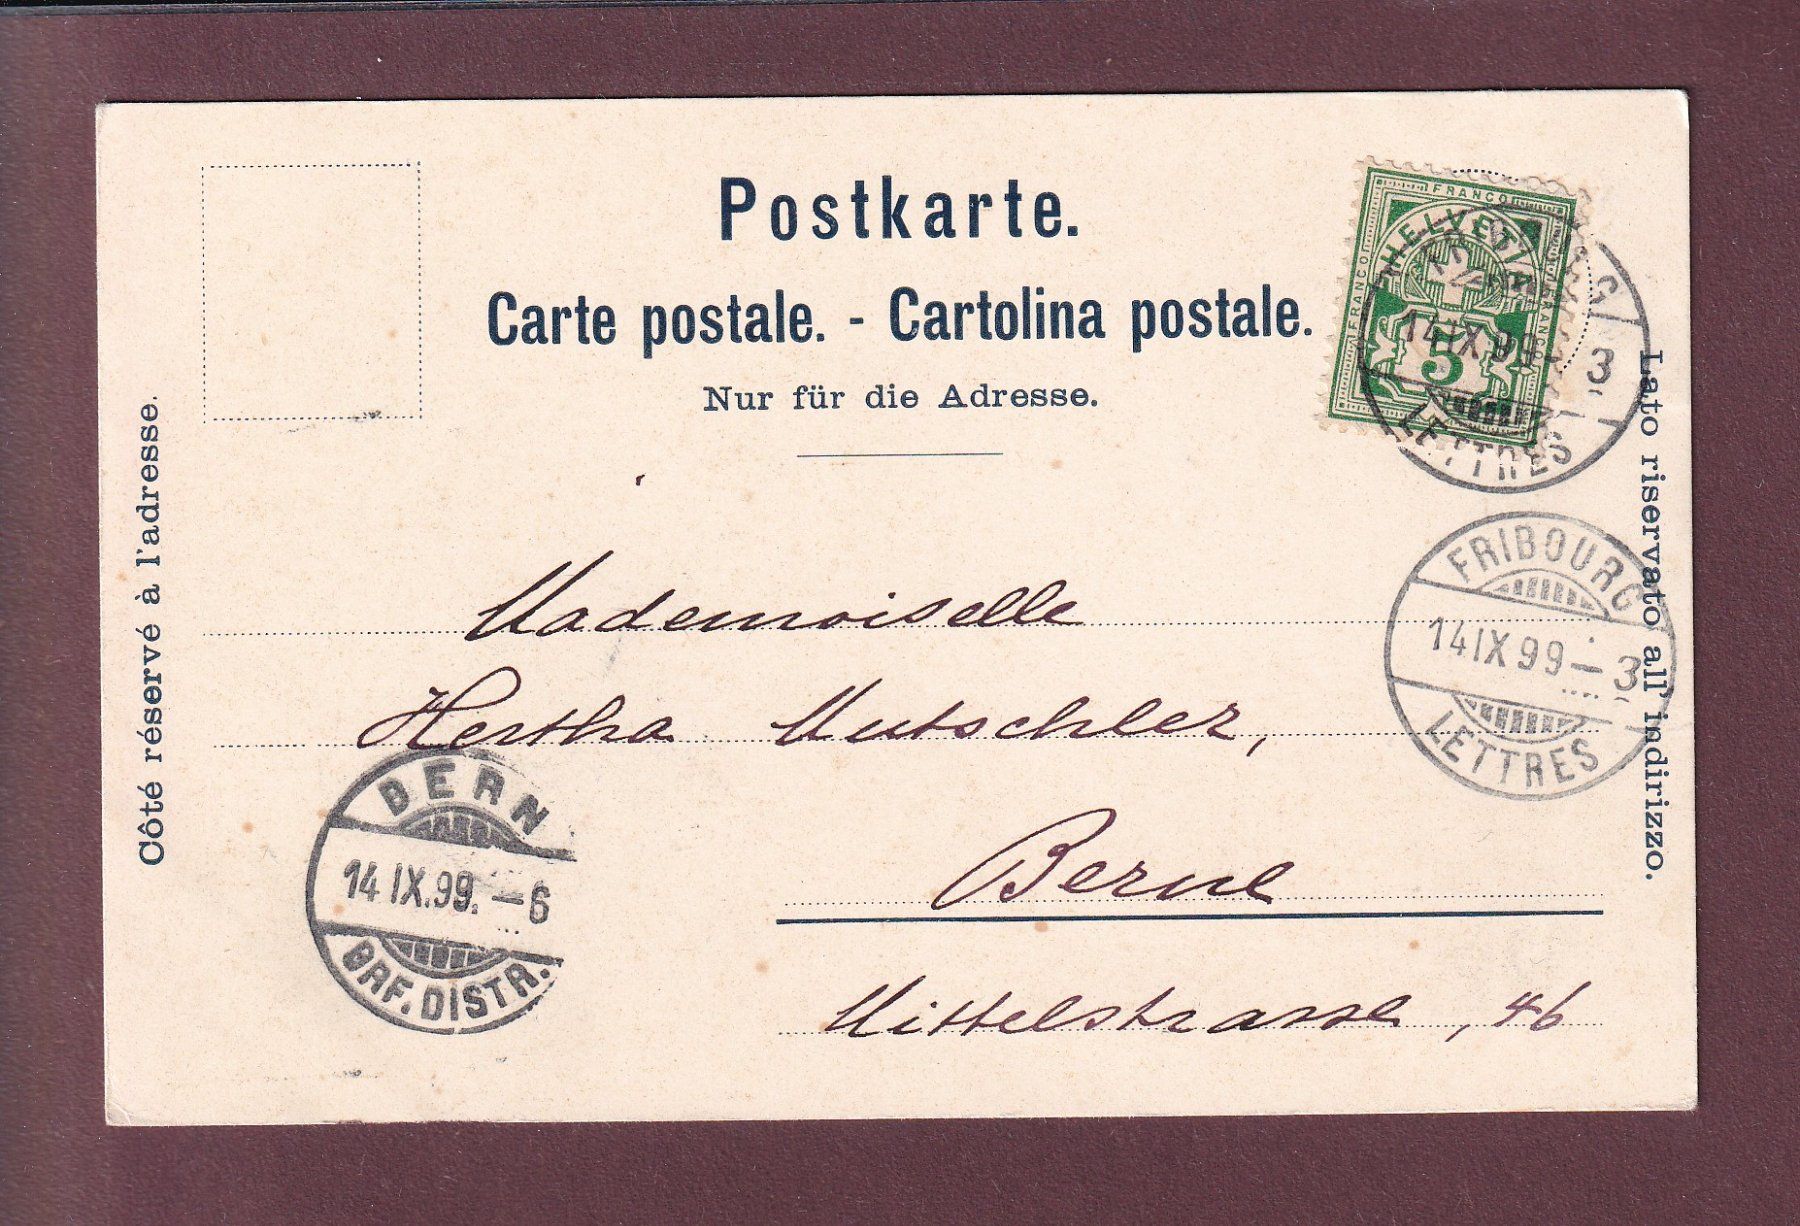 Postkarte.
Carte postale. - Cartolina postale.
Nur für die Adresse.
Côté réservé à l'adresse.
Lato riservato all' indirizzo.
FRANCO
FRANCO
FRANCO
HELVETIA
5
14 IX 99
3
LETTRES
FRIBOURG
14 IX 99 — 3
LETTRES
Mademoiselle
Hertha Mutschler,
Berne
Mittelstrasse, 46
BERN
14 IX.99. — 6
BRF. DISTR.